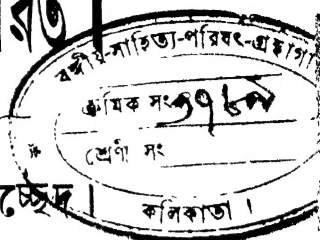 রত।
বঙ্গীয়-সাহিত্য-পরিষৎ-গ্রন্থাগা
ক্রমিক সং
শ্রেণী সং
চ্ছেদ।
কলিকাতা।